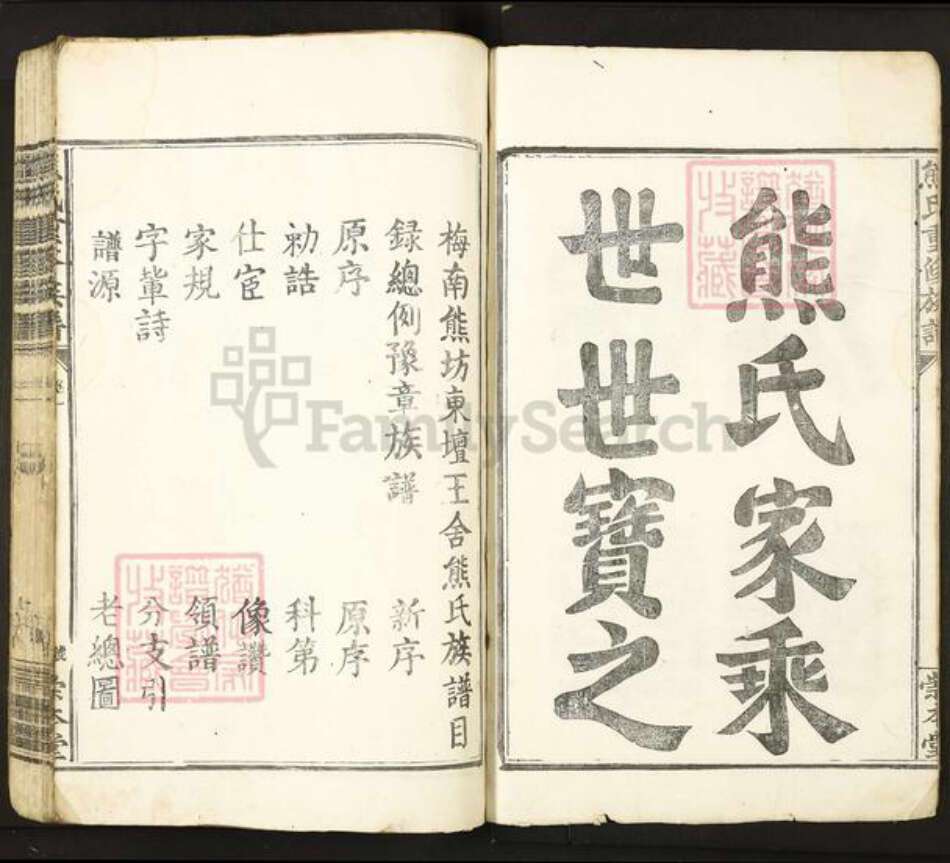 熊氏重修族譜
崇本堂
熊氏家乘
世世寶之
梅南熊坊東壇王舍熊氏族譜目
錄總例豫章族譜 新序
原序 原序
勅誥 科第
仕宦 像讚
家規 領譜
字軰詩 分支引
譜源 老總圖
崇本堂
FamilySearch